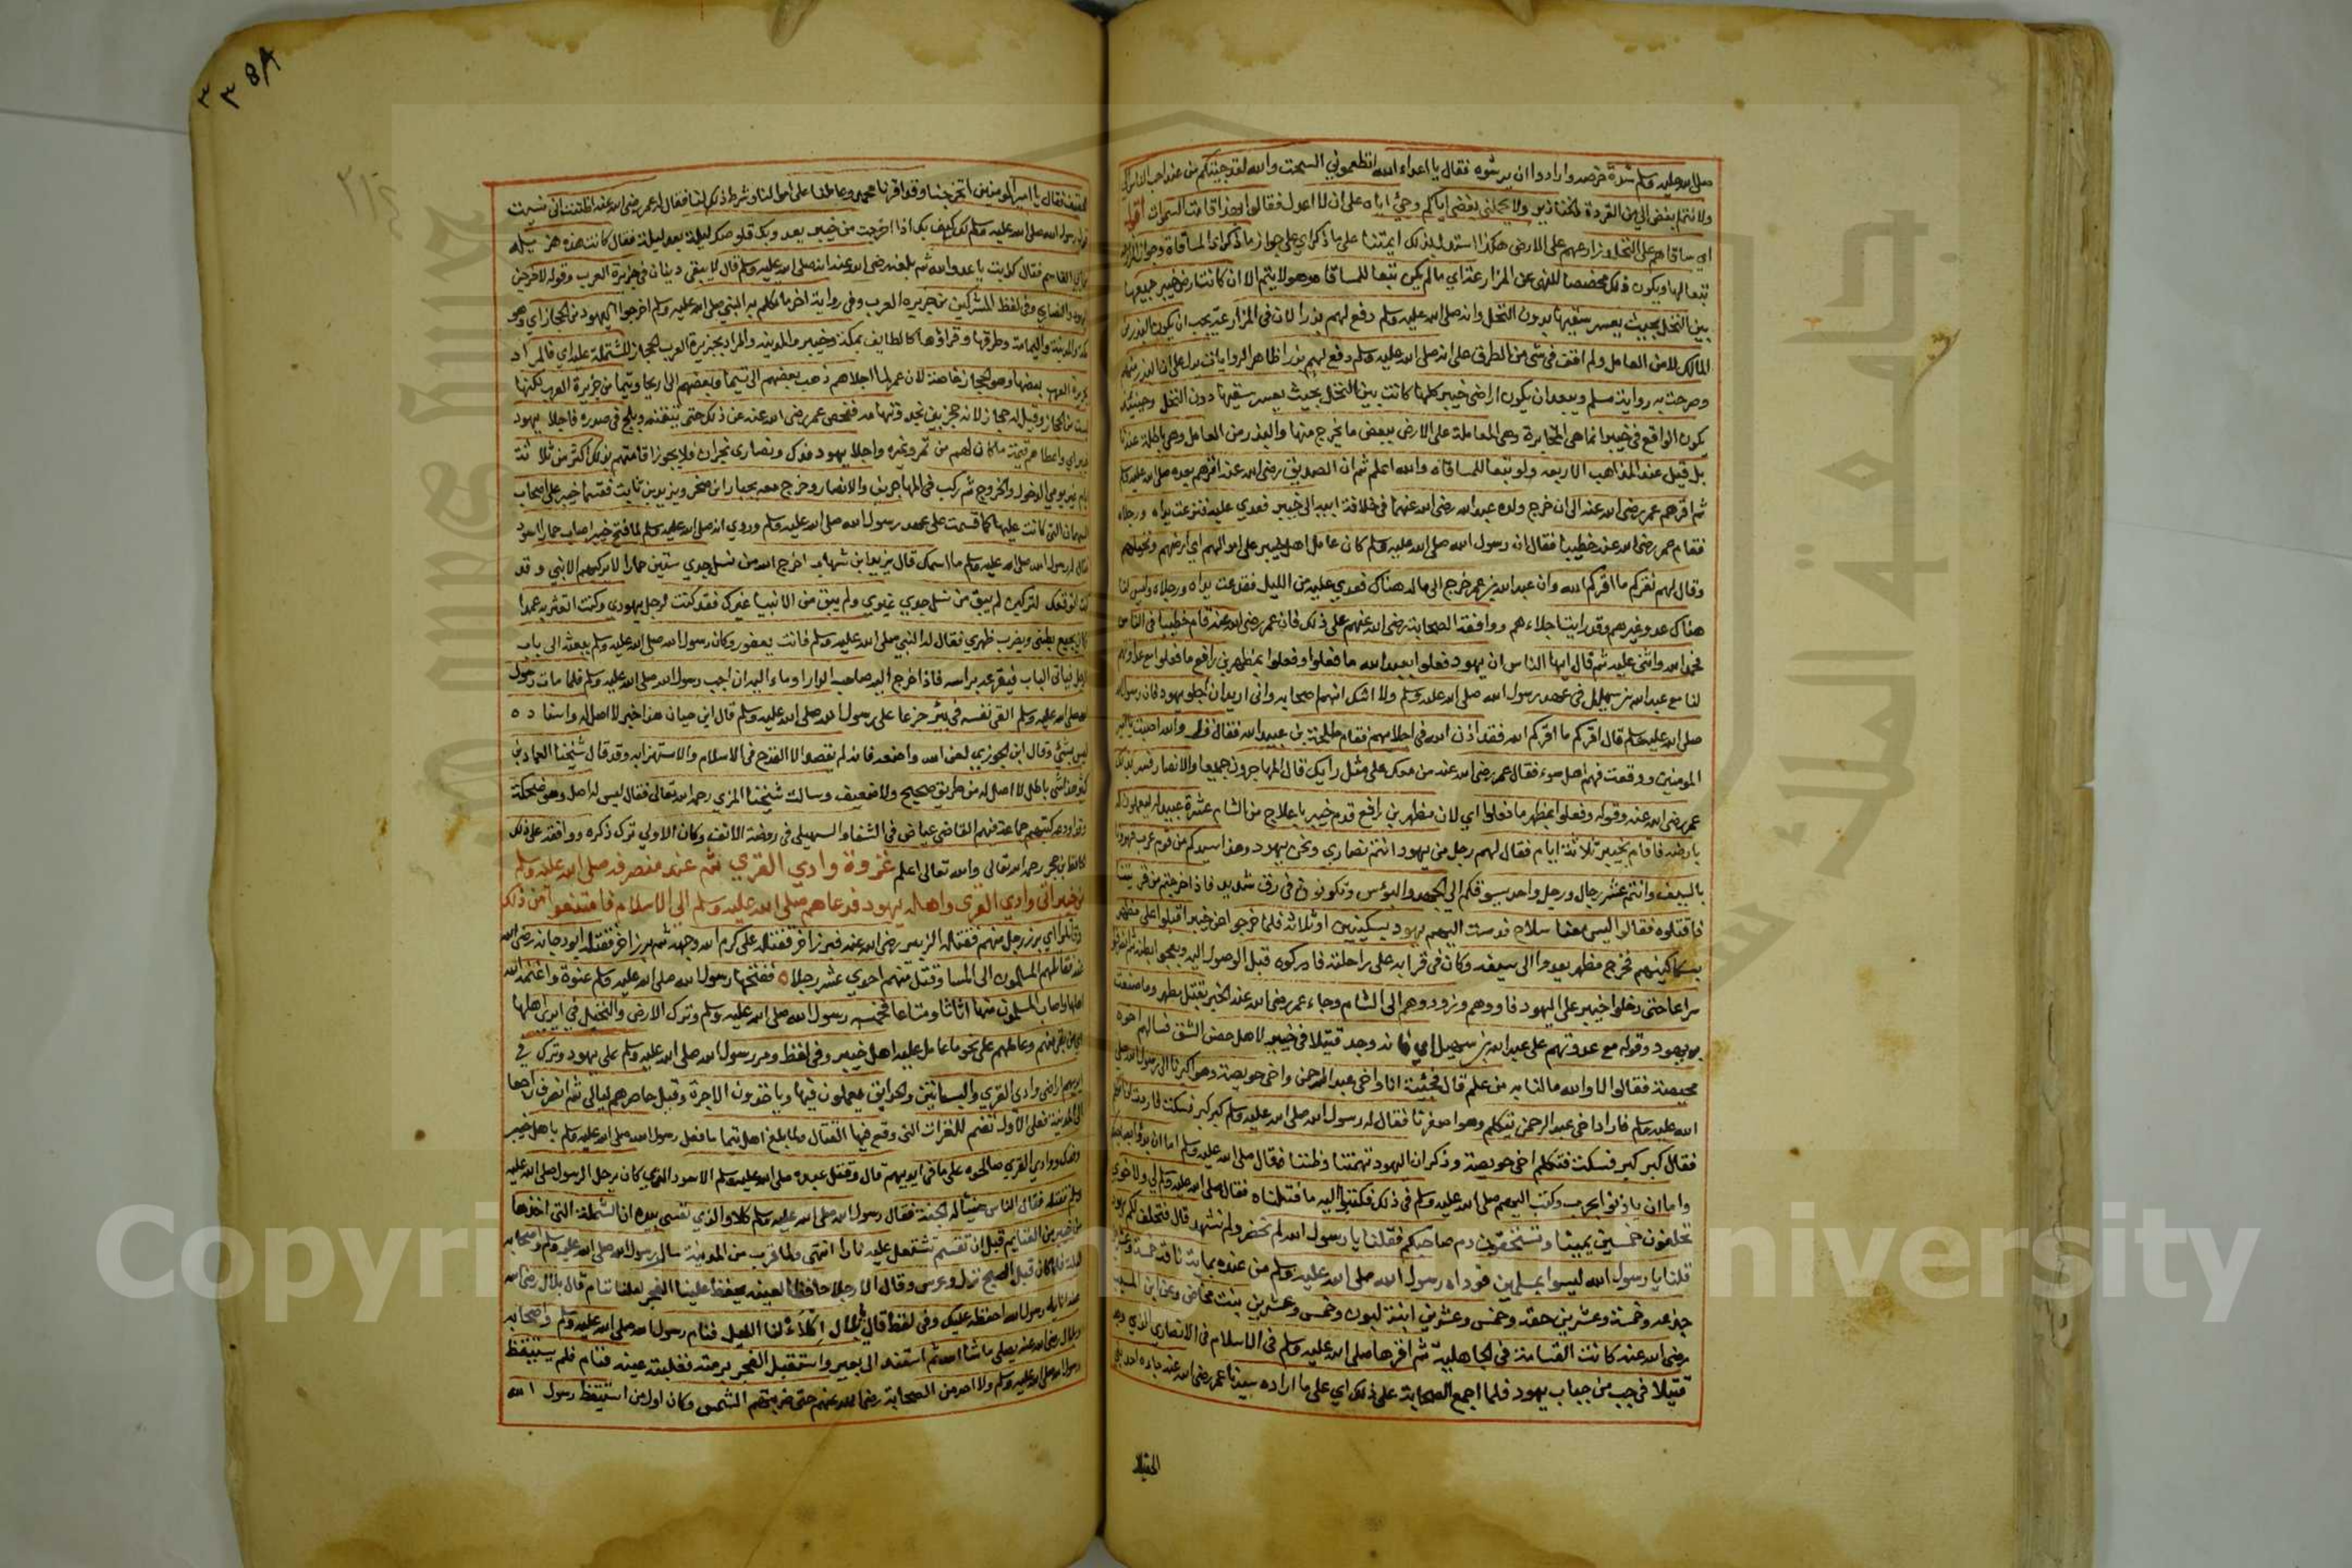 صلى الله عليه وسلم شدة خرصه وارادوا ان يرشوه فقال يا اعداء الله اتطعموني السحت والله لقد جئتكم من عند احب الناس الي
ولانتم ابغض الي من القردة والخنازير ولا يحملني بغضي اياكم وحبي اياه على ان لا اعدل فقالوا بهذا قامت السموات
اي ساقاهم على النخل وزارعهم على الارض هكذا استدل بذلك ايمتنا على ما ذكر اي على جواز ما ذكر اي المساقاة وجواز
تبعا لها ويكون ذلك مخصصا للنهي عن المزارعة اي ما لم يكن تبعا للمساقاة وهو لا يتم الا ان كانت ارض خيبر جميعها
بين النخل بحيث يعسر سقيها بدون النخل وانه صلى الله عليه وسلم دفع لهم بذرا لان في المزارعة يجب ان يكون البذر من
المالك لا من العامل ولم اقف في شي من الطرق على انه صلى الله عليه وسلم دفع لهم بذرا ظاهر الروايات يدل على ان البذر منهم
وصرحت به رواية مسلم ويبعد ان يكون اراضي خيبر كلها كانت بين النخل بحيث يعسر سقيها دون النخل وحينئذ
يكون الواقع في خيبر انما هي المخابرة وهي المعاملة على الارض ببعض ما يخرج منها والبذر من العامل وهي باطلة عندنا
بل قيل عند المذاهب الاربعة ولو تبعا للمساقاة والله اعلم ثم ان الصديق رضي الله عنه اقرهم بعده صلى الله عليه وسلم
ثم اقرهم عمر رضي الله عنه الى ان خرج ولده عبد الله رضي الله عنهما في خلافة ابيه الى خيبر فعدي عليه ففدعت يداه ورجلاه
فقام عمر رضي الله عنه خطيبا فقال ان رسول الله صلى الله عليه وسلم كان عامل اهل خيبر على اموالهم اي ارضهم ونخيلهم
وقال لهم نقركم ما اقركم الله وان عبد الله بن عمر خرج الى ماله هناك فعدي عليه من الليل ففدعت يداه ورجلاه وليس لنا
هناك عدو غيرهم وقد رايت اجلاءهم ووافقه الصحابة رضي الله عنهم على ذلك فان عمر رضي الله عنه قام خطيبا في الناس
فحمد الله واثنى عليه ثم قال ايها الناس ان يهود فعلوا بعبد الله ما فعلوا وفعلوا بمظهر بن رافع ما فعلوا مع عداوتهم
لنا مع عبد الله بن سهل في عهد رسول الله صلى الله عليه وسلم ولا اشك انهم اصحابه واني اريد ان اجلو يهود فان رسول الله
صلى الله عليه وسلم قال اقركم ما اقركم الله فقد اذن الله في اجلائهم فقام طلحة بن عبيد الله فقال قد والله اصبت يا امير
المومنين ووقعت فهم اهل سوء فقال عمر رضي الله عنه من معك على مثل رأيك قال المهاجرون جميعا والانصار
عمر رضي الله عنه وقوله وفعلوا بمظهر ما فعلوا اي لان مظهر بن رافع قدم خيبر باعلاج من الشام عشرة عبيد له ليعملون له
بارضه فاقام بخيبر ثلاثة ايام فقال لهم رجل من يهود انتم نصارى ونحن يهود وهذا سيدكم من قوم عرب قهرونا
بالسيف وانتم عشر رجال ورجل واحد يسوقكم الى الجهد والبؤس وتكونون في رق شديد فاذا خرجتم من قريتنا
فاقتلوه فقالوا ليس معنا سلاح فدست اليهم يهود بسكينين او ثلاثة فلما خرجوا من خيبر اقبلوا على مظهر
بسكاكينهم فخرج مظهر يعدوا الى سيفه وكان في قرابه على راحلته فادركوه قبل الوصول اليه وبعجوا بطنه ثم انصرفوا
سراعا حتى دخلوا خيبر على اليهود فاووهم وزودوهم الى الشام وجاء عمر رضي الله عنه الخبر بقتل مظهر وما صنعت
به يهود وقوله مع عدوتهم على عبد الله بن سهيل اي فانه وجد قتيلا في خيبر لاهل حصن الشق فسالهم اخوه
محيصة فقالوا لا والله مالنا به من علم قال فجئت انا واخي عبد الرحمن واخي حويصة وهو اكبرنا الى رسول الله صلى
الله عليه وسلم فاراد اخي عبد الرحمن يتكلم وهو اصغرنا فقال له رسول الله صلى الله عليه وسلم كبر كبر فسكت فاردت ان اتكلم
فقال كبر كبر فسكت فتكلم اخي حويصة وذكر ان اليهود تهمتنا وظنتنا فقال صلى الله عليه وسلم اما ان يدوا صاحبكم
واما ان ياذنوا بحرب وكتب اليهم صلى الله عليه وسلم في ذلك فكتبوا اليه ما قتلناه فقال صلى الله عليه وسلم لي ولاخوي
تحلفون خمسين يمينا وتستحقون دم صاحبكم فقلنا يا رسول الله لم نحضر ولم نشهد قال فتحلف لكم يهود
قلنا يا رسول الله ليسوا بمسلمين فوداه رسول الله صلى الله عليه وسلم من عنده بماية ناقة خمسة وعشرين
جذعه وخمسة وعشرين حقه وخمس وعشرين ابنة لبون وخمس وعشرين بنت مخاض وعن ابن المسيب
رضي الله عنه كانت القسامة في الجاهلية ثم اقرها صلى الله عليه وسلم في الاسلام في الانصاري الذي وجد
قتيلا في جب من جباب يهود فلما اجمع الصحابة على ذلك اي على ما اراده سيدنا عمر رضي الله عنه جاءه احد بني
الحقيق
الحقيق فقال يا امير المومنين اتخرجنا وقد اقرنا محمد وعاملنا على اموالنا وشرط ذلك لنا فقال له عمر رضي الله عنه اظننت اني نسيت
قول رسول الله صلى الله عليه وسلم لك كيف بك اذا اخرجت من خيبر يعدو بك قلوصك ليلة بعد ليلة فقال كانت هذه هزيلة
من ابي القاسم فقال كذبت يا عدو الله ثم بلغه رضي الله عنه انه صلى الله عليه وسلم قال لا يبقى دينان في جزيرة العرب وقوله لاخرجن
اليهود والنصارى وفي لفظ المشركين من جزيرة العرب وفي رواية اخر ما تكلم به النبي صلى الله عليه وسلم اخرجوا اليهود من الحجاز اي وهو
مكة والمدينة واليمامة وطرقها وقراها كالطايف بمكة وخيبر بالمدينة والمراد بجزيرة العرب الحجاز المشتملة عليه اي فالمراد
بجزيرة العرب بعضها وهو الحجاز خاصة لان عمر لما اجلاهم ذهب بعضهم الى تيما وبعضهم الى اريحا وتيما من جزيرة العرب لكنها
ليست من الحجاز وقيل له حجاز لانه حجز بين نجد وتهامه ففحص عمر رضي الله عنه عن ذلك حتى تيقنه وثلج في صدره فاجلا يهود
خيبر اي واعطاهم قيمة ما كان لهم من تمر وغيره واجلا يهود فدك ونصارى نجران فلا يجوز اقامتهم بذلك اكثر من ثلاثة
ايام غير يومي الدخول والخروج ثم ركب في المهاجرين والانصار وخرج معه جبار ابن صخر ويزيد بن ثابت فقسما خيبر على اصحاب
السهمان التي كانت عليها كما قسمت على عهد رسول الله صلى الله عليه وسلم وروي انه صلى الله عليه وسلم لما فتح خيبر اصاب حمارا اسود
فقال له رسول الله صلى الله عليه وسلم ما اسمك قال يزيد ابن شهاب اخرج الله من نسل جدي ستين حمارا لا يركبهم الا نبي وقد
كنت اتوقعك لتركبني لم يبق من نسل جدي غيري ولم يبق من الانبيا غيرك فقد كنت لرجل يهودي وكنت اتعثر به عمدا
كان يجيع بطني ويضرب ظهري فقال له النبي صلى الله عليه وسلم فانت يعفور وكان رسول الله صلى الله عليه وسلم يبعثه الى باب
الرجل فياتي الباب فيقرعه براسه فاذا خرج اليه صاحب الدار اوماء اليه ان اجب رسول الله صلى الله عليه وسلم فلما مات رسول
الله صلى الله عليه وسلم القى نفسه في بئر جزعا على رسول الله صلى الله عليه وسلم قال ابن حبان هذا خبر لا اصل له واسناده
ليس بشيء وقال ابن الجوزي لعن الله واضعه فانه لم يقصد الا القدح في الاسلام والاستهزا به وقد قال شيخنا العماد بن
كثير هذا شي باطل لا اصل له من طريق صحيح ولا ضعيف وسالت شيخنا المزي رحمه الله تعالى فقال ليس له اصل وهو ضحكة
وقد اودعه كتبهم جماعة منهم القاضي عياض في الشفا والسهيلي في روضه الانف وكان الاولى ترك ذكره ووافقه على ذلك
الحافظ بن حجر رحمه الله تعالى والله تعالى اعلم غزوة وادي القرى ثم عند منصرفه صلى الله عليه وسلم
من خيبر اتى وادي القرى واهله يهود فدعاهم صلى الله عليه وسلم الى الاسلام فامتنعوا من ذلك
وقاتلوا اي برز رجل منهم فقتله الزبير رضي الله عنه فبرز اخر فقتله علي كرم الله وجهه ثم برز اخر فقتله ابو دجانه رضي الله
عنه فقاتلهم المسلمون الى المسا وقتل منهم احدى عشر رجلا ففتحها رسول الله صلى الله عليه وسلم عنوة واغنمه الله
اهلها واصاب المسلمون منها اثاثا ومتاعا فخمسه رسول الله صلى الله عليه وسلم وترك الارض والنخيل في ايدي اهلها
اي من بقي منهم وعاملهم على نحو ما عامل عليه اهل خيبر وفي لفظ ومر رسول الله صلى الله عليه وسلم على يهود وترك في
ايديهم اراضي وادي القرى والبساتين والحدايق يعملون فيها وياخذون الاجرة وقيل حاصرهم ليالي ثم انصرف راجعا
الى المدينة فعلى الاول تضم للغزوات التي وقع فيها القتال ولما بلغ اهل تيما ما فعل رسول الله صلى الله عليه وسلم باهل خيبر
وفدك ووادي القرى صالحوه على ما في ايديهم قال وقتل عبده صلى الله عليه وسلم الاسود الذي كان يرحل الرسول صلى الله عليه
وسلم فقال الناس هنيئا له الجنة فقال رسول الله صلى الله عليه وسلم كلا والذي نفسي بيده ان الشملة التي اخذها
من خيبر من الغنايم قبل ان تقسم تشتعل عليه نارا انتهى ولما قرب من المدينة سار رسول الله صلى الله عليه وسلم واصحابه
ليلة فلما كان قبل الصبح نزل وعرس وقال الا رجلا حافظا لعينه يحفظ علينا الفجر لعلنا ننام قال بلال رضي الله
عنه انا يا رسول الله احفظه عليك وفي لفظ قال بلال اكلأ لنا الليل فنام رسول الله صلى الله عليه وسلم واصحابه
وبلال رضي الله عنه يصلي ما شا الله ثم استند الى بعير واستقبل الفجر يرمقه فغلبته عينه فنام فلم يستيقظ
رسول الله صلى الله عليه وسلم ولا احد من الصحابة رضي الله عنهم حتى ضربتهم الشمس وكان اول من استيقظ رسول الله
Copyright © King Saud University